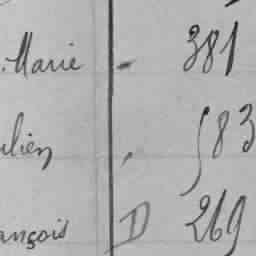 . Marie - 381
ulien , 583
ançois D 269